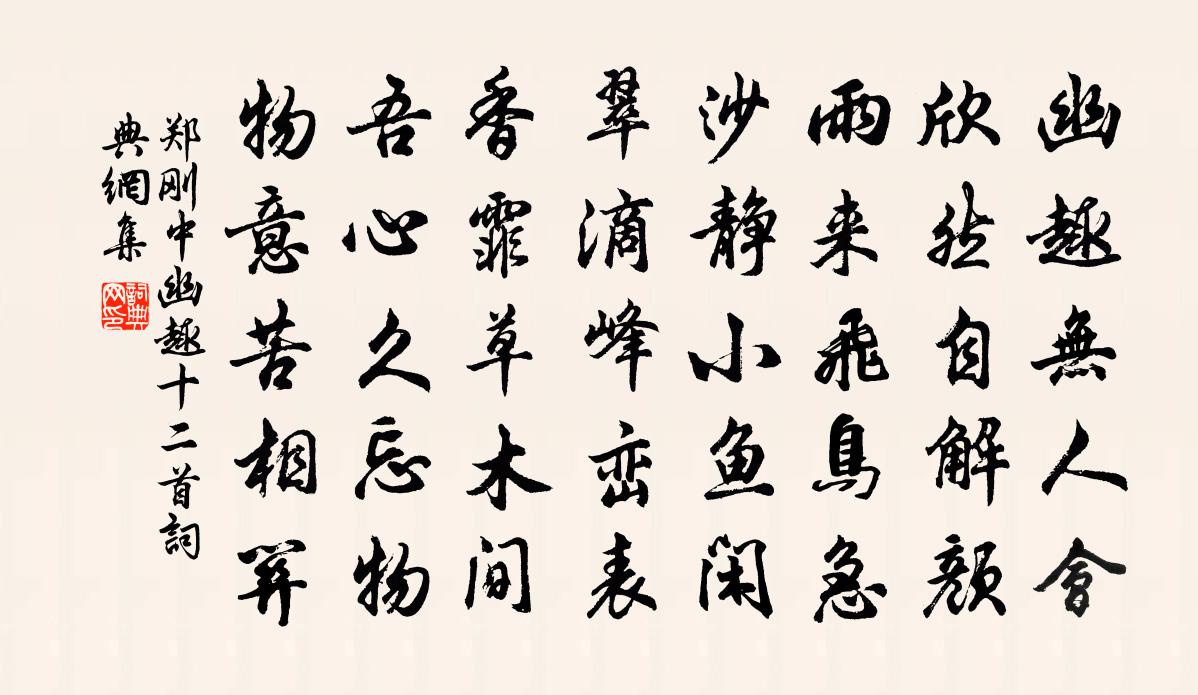 幽趣無人會
欣然自解颜
雨来飛鳥急
沙静小鱼闲
翠滴峰峦表
香霏草木间
吾心久忘物
物意苦相関
郑刚中幽趣十二首詞
典網集
詞典
网印